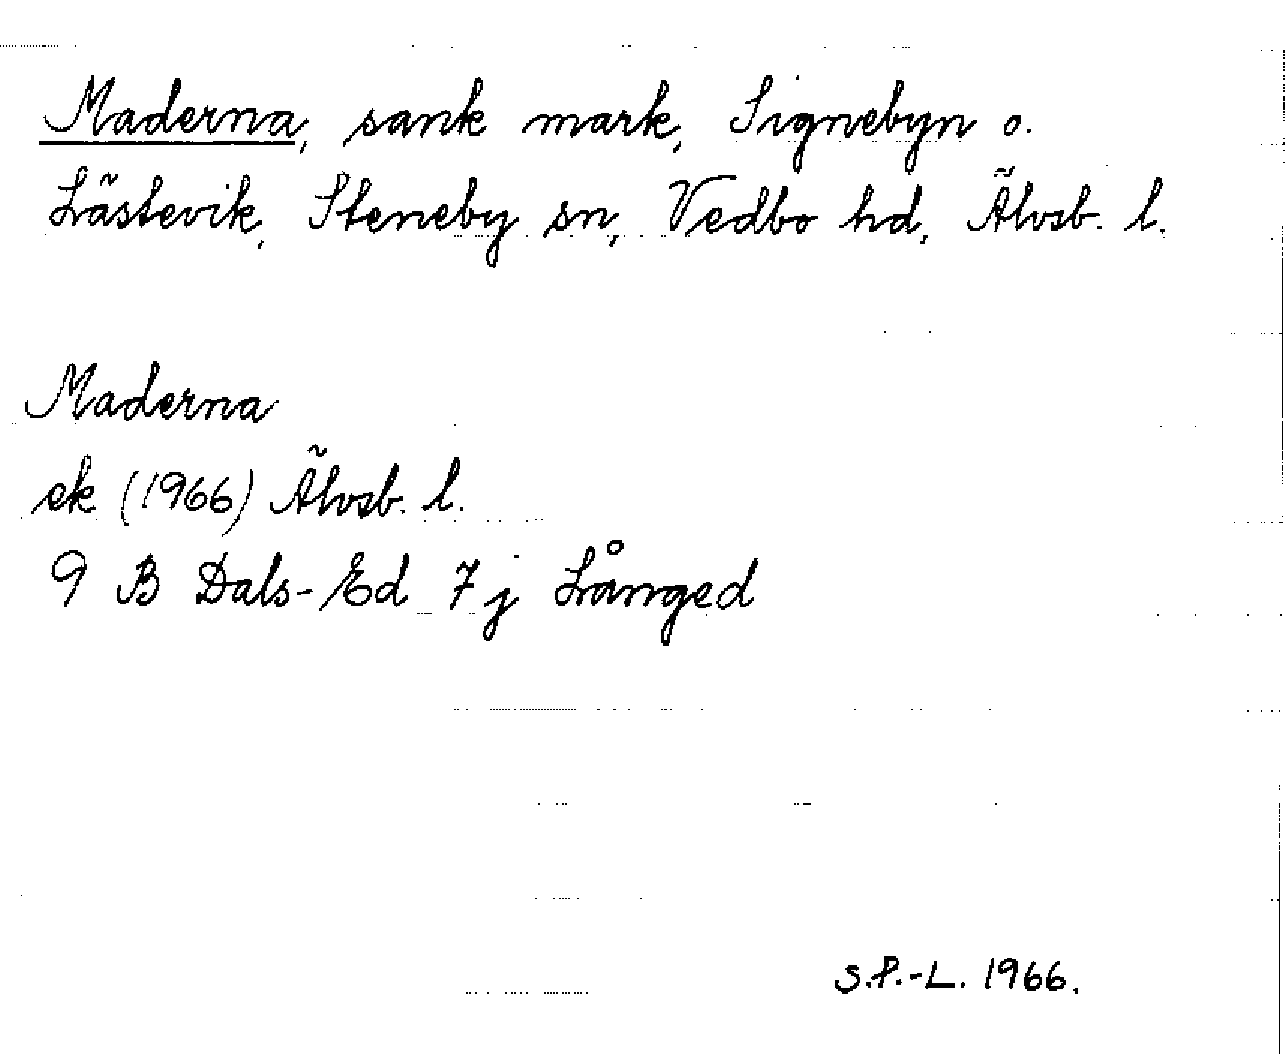 Maderna, sank mark, Signebyn o.
Lästevik, Steneby sn, Vedbo hd, Älvsb. l.
Maderna
ek (1966) Älvsb. l.
9 B Dals-Ed 7 j Långed
S.P.-L. 1966.